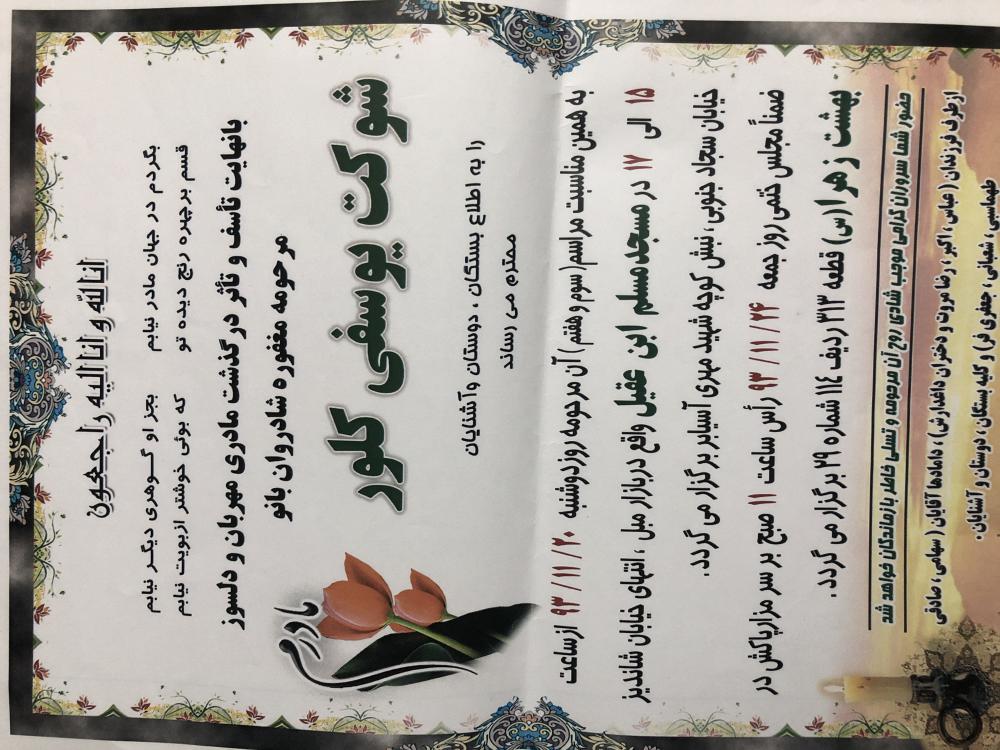 انا لله و انا الیه راجعون
بگردم در جهان مادر نیابم بجز او گوهری دیگر نیابم
قسم بر چهره رنج دیده تو که بوئی خوشتر از بویت نیابم
بانهایت تأسف و تأثر درگذشت مادری مهربان و دلسوز
مرحومه مغفوره شادروان بانو
شوکت یوسفی کلور
مادرم
را به اطلاع بستگان ، دوستان و آشنایان
محترم می رساند
به همین مناسبت مراسم( سوم و هفتم ) آن مرحومه روز دوشنبه ۹۳/۱۱/۲۰ ازساعت
۱۵ الی ۱۷ در مسجد مسلم ابن عقیل واقع دربازار مبل ، انتهای خیابان شاندیز
خیابان سجاد جنوبی ، نبش کوچه شهید مهری آسیابر برگزار می گردد.
ضمناً مجلس ختمی روز جمعه ۹۳/۱۱/۲۴ رأس ساعت ۱۱ صبح بر سر مزار پاکش در
بهشت زهرا(س) قطعه ۳۱۳ ردیف ۱۱۴ شماره ۲۹ برگزار می گردد.
حضور شما سروران گرامی موجب شادی روح آن مرحومه و تسلی خاطر بازماندگان خواهد شد
ازطرف فرزندان ( عباس ، اکبر ، رضا مروت و دختران داغدارش) ، دامادها آقایان ( سهامی ، صادقی
طهماسبی ، شعبانی ، جعفری فر) و کلیه بستگان ، دوستان و آشنایان .